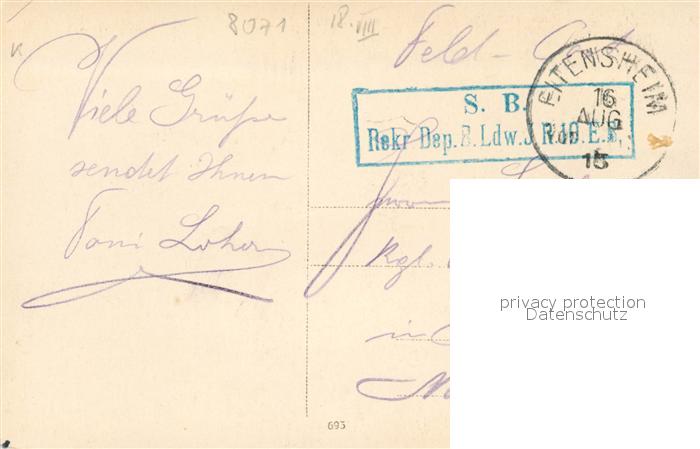 8071
18.VIII
K
Viele Grüße
sendet Ihnen
Toni Loher
Feld-
S. B.
Rekr. Dep. E. Ldw. J. R. E. B.
EITENSHEIM
16
AUG
15
Kgl.
in
privacy protection
Datenschutz
693